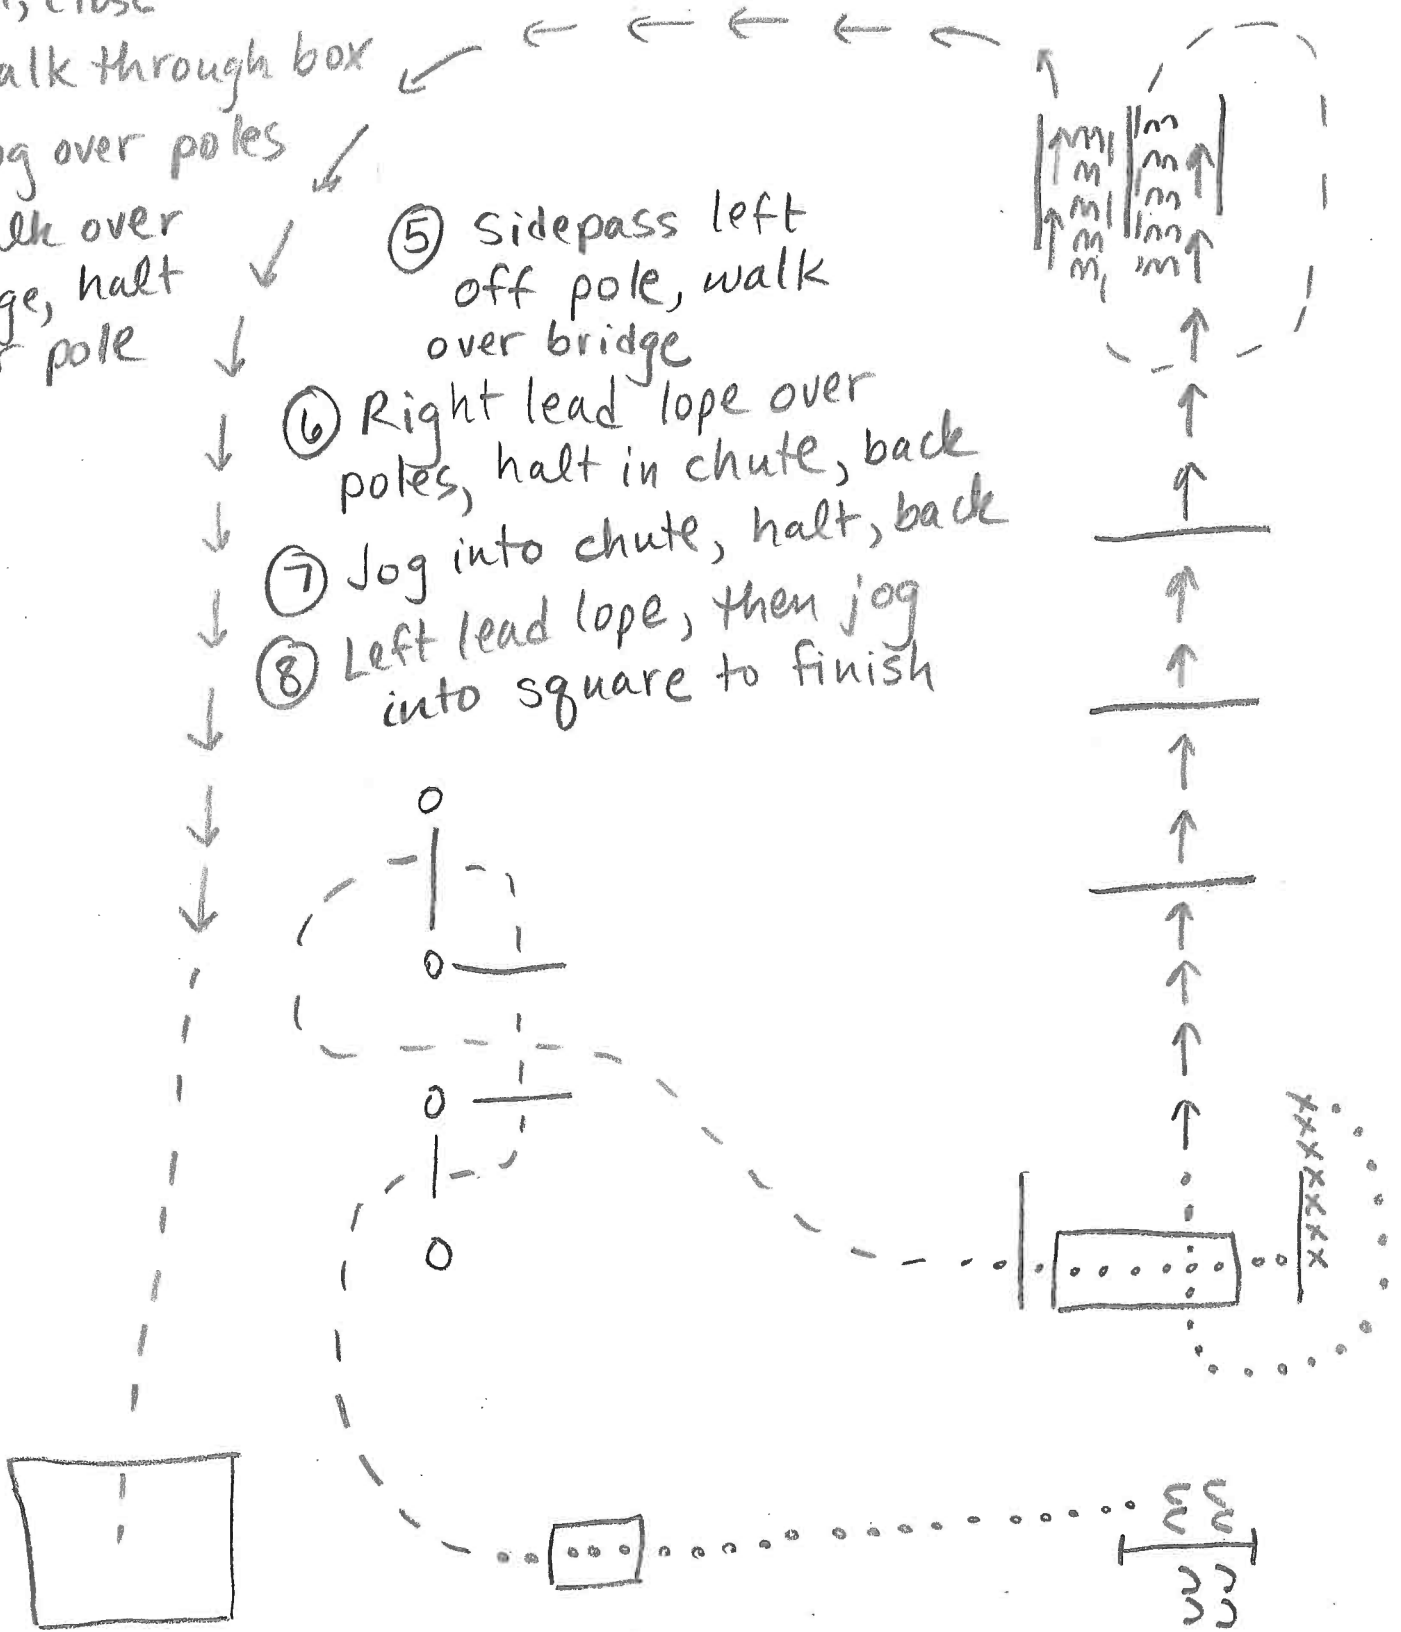 close
alk through box
og over poles
alk over
ge, halt
r pole
⑤ Sidepass left
off pole, walk
over bridge
⑥ Right lead lope over
poles, halt in chute, back
⑦ Jog into chute, halt, back
⑧ Left lead lope, then jog
into square to finish